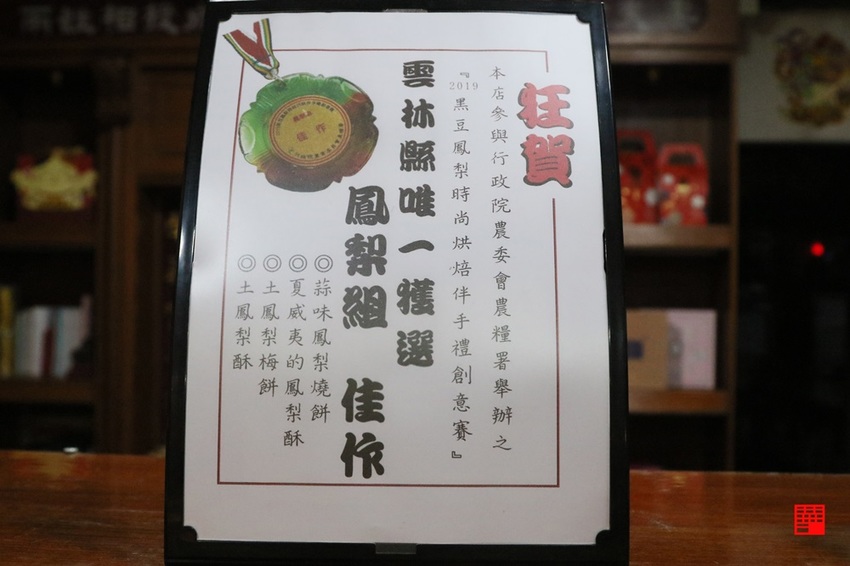 狂賀
本店參與行政院農委會農糧署舉辦之
『2019黑豆鳳梨時尚烘焙伴手禮創意賽』
雲林縣唯一獲選
鳳梨組 佳作
◎蒜味鳳梨燒餅
◎夏威夷的鳳梨酥
◎土鳳梨梅餅
◎土鳳梨酥
佳作